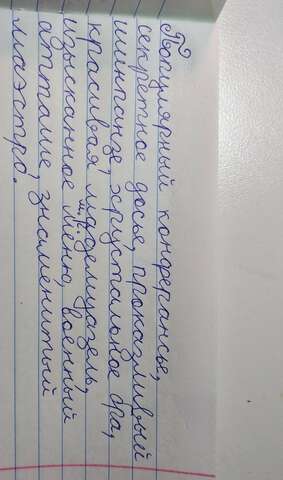 Популярный конферансье,
секретное досье, проказливый
шимпанзе, хрустальное бра,
красивая мадемуазель,
м. р.
изысканное меню, военный
атташе, знаменитый
маэстро.